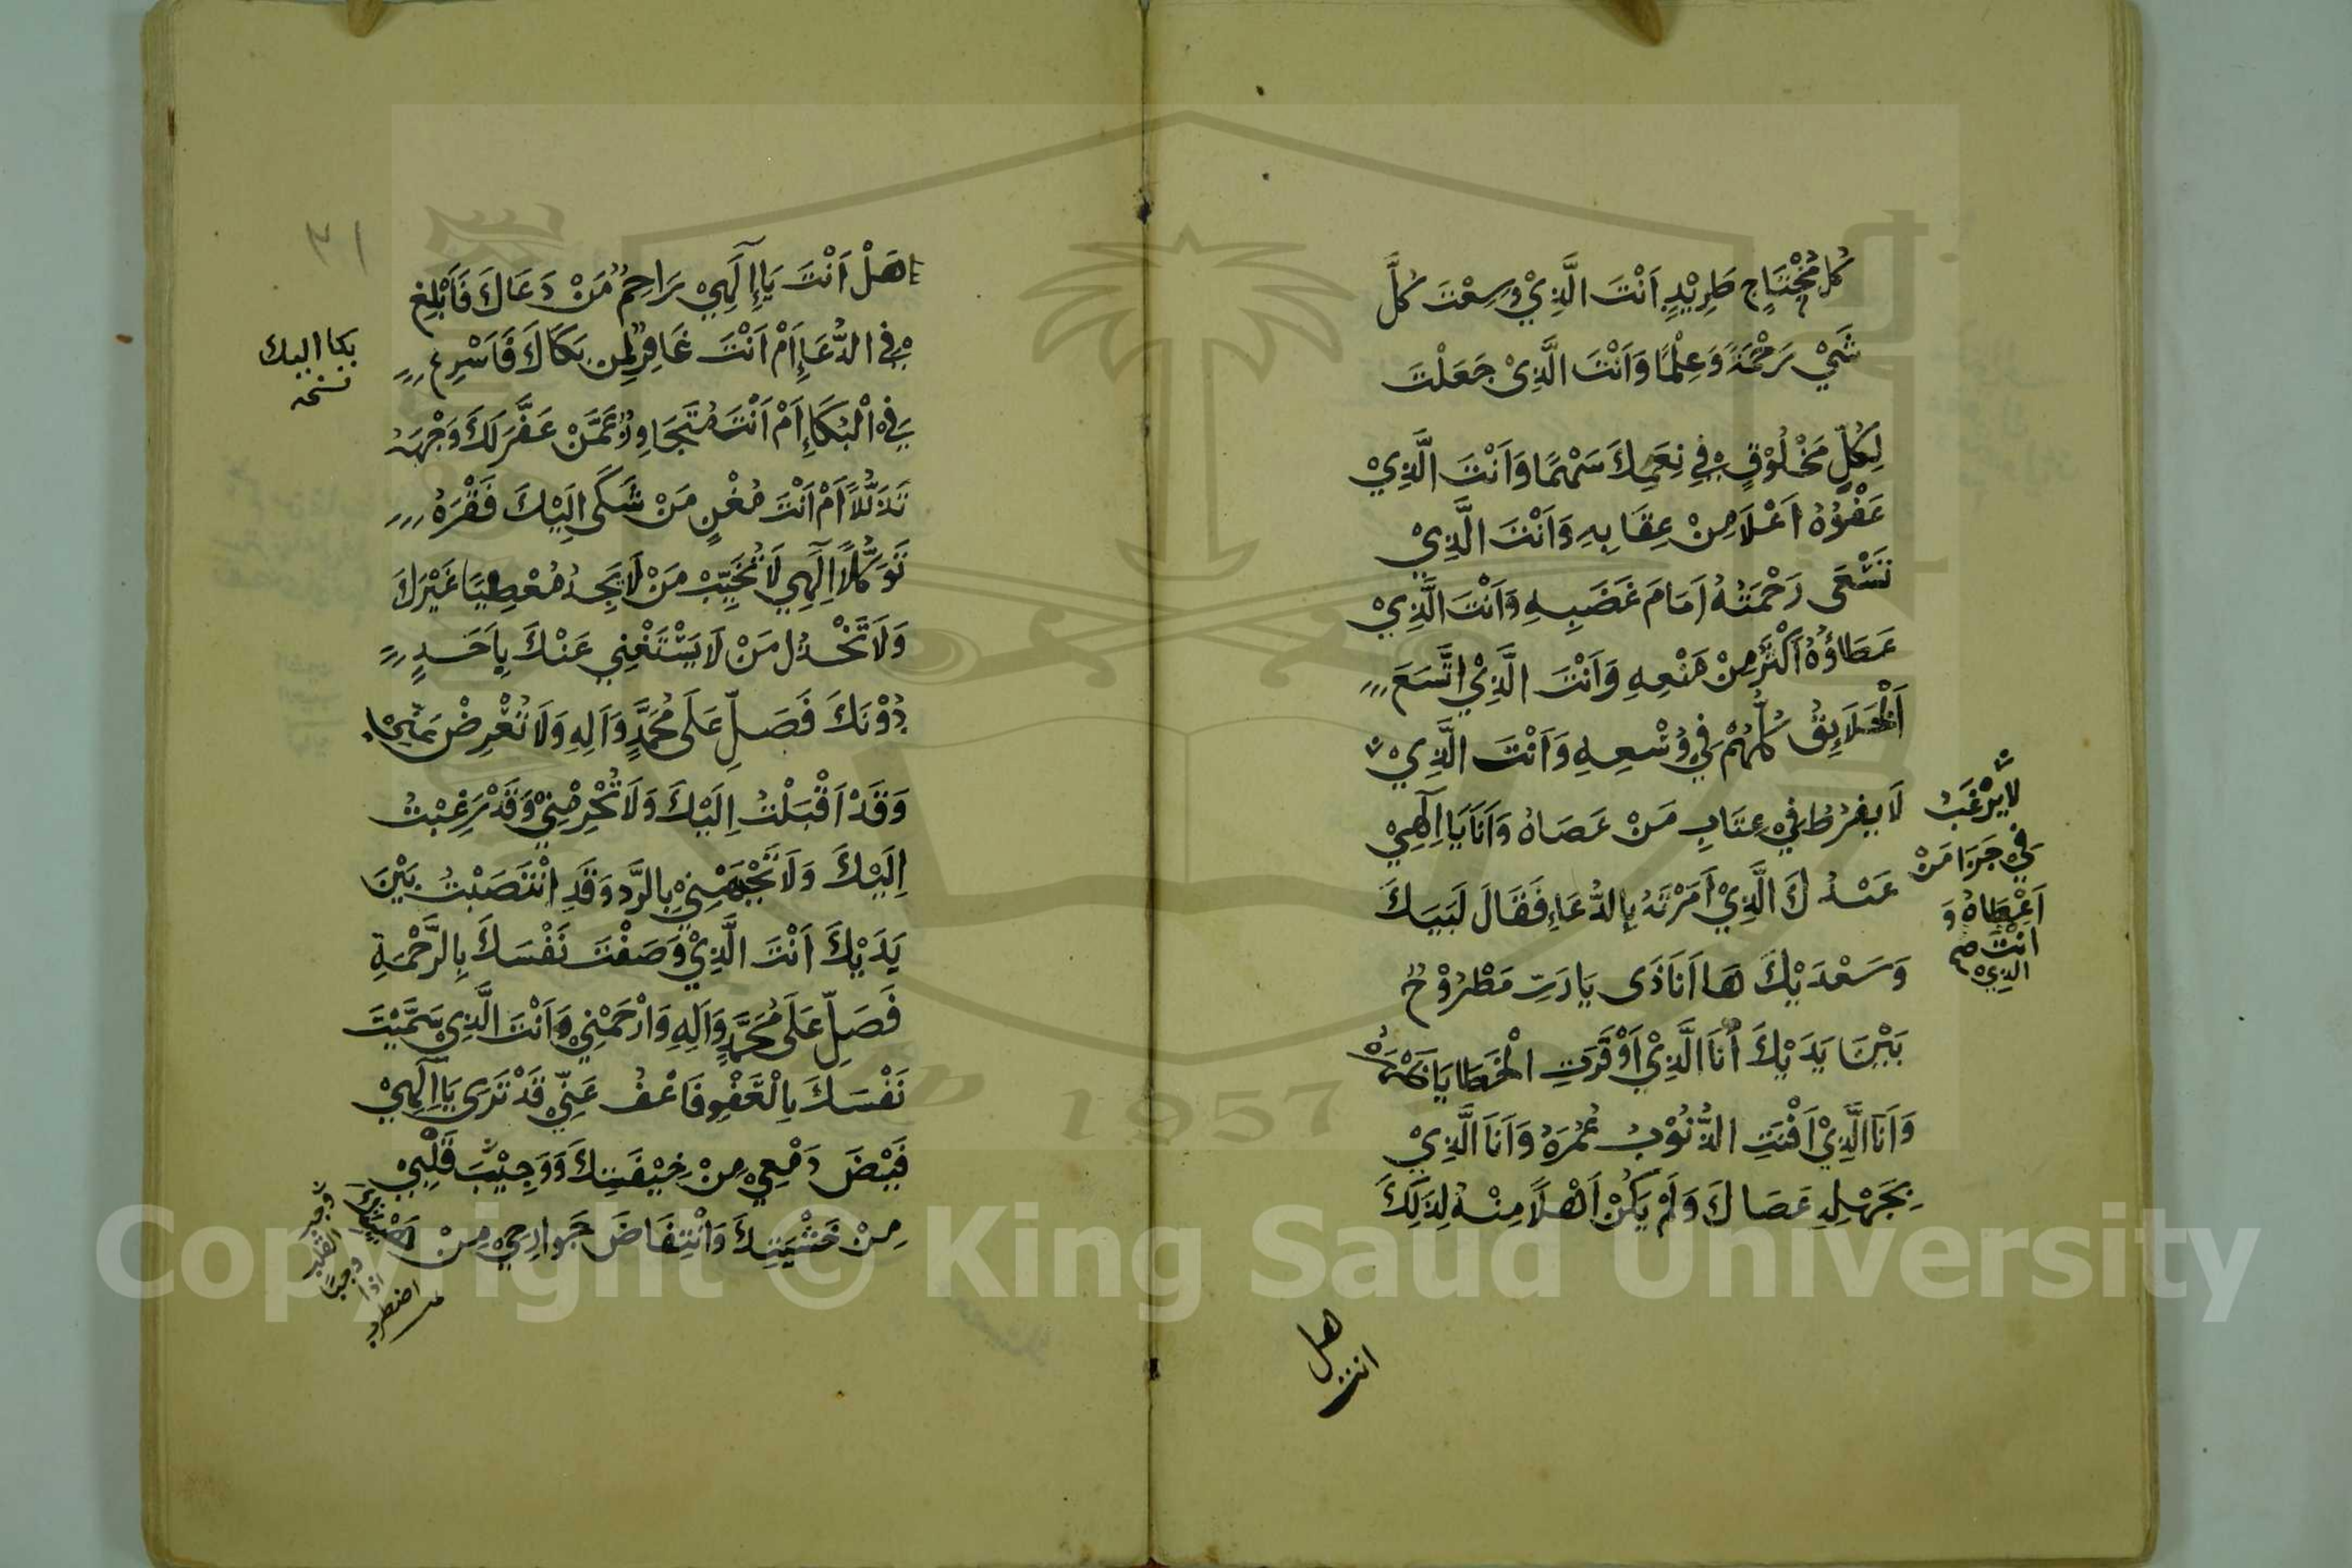 كُلُّ مُحْتَاجٍ طَرِيْدٍ اَنْتَ الَّذِيْ وَسِعْتَ كُلَّ
شَيْءٍ رَحْمَةً وَعِلْمًا وَاَنْتَ الَّذِيْ جَعَلْتَ
لِكُلِّ مَخْلُوْقٍ فِيْ نِعَمِكَ سَهْمًا وَاَنْتَ الَّذِيْ
عَفْوُهُ اَعْلَا مِنْ عِقَابِهِ وَاَنْتَ الَّذِيْ
تَسْعَى رَحْمَتُهُ اَمَامَ غَضَبِهِ وَاَنْتَ الَّذِيْ
عَطَاؤُهُ اَكْثَرُ مِنْ مَنْعِهِ وَاَنْتَ الَّذِيْ اتَّسَعَ
اَلْخَلَايِقُ كُلُّهُمْ فِيْ وُسْعِهِ وَاَنْتَ الَّذِيْ
لَا يَرْغَبُ
فِيْ جَزَا مَنْ
اَعْطَاهُ وَ
اَنْتَ
الَّذِيْ
صح
لَا يَفْرُطُ فِيْ عِقَابِ مَنْ عَصَاهُ وَاَنَا يَا اِلٰهِيْ
عَبْدُكَ الَّذِيْ اَمَرْتَهُ بِالدُّعَاءِ فَقَالَ لَبَّيْكَ
وَسَعْدَيْكَ هَا اَنَا ذَى يَا رَبِّ مَطْرُوْحٌ
بَيْنَ يَدَيْكَ اَنَا الَّذِيْ اَوْقَرَتِ الْخَطَايَا ظَهْرَهُ
وَاَنَا الَّذِيْ اَفْنَتِ الذُّنُوْبُ عُمْرَهُ وَاَنَا الَّذِيْ
بِجَهْلِهِ عَصَاكَ وَلَمْ يَكُنْ اَهْلًا مِنْهُ لِذَلِكَ
هل
انت
٢١
هَلْ اَنْتَ يَا اِلَهِيْ رَاحِمٌ مَنْ دَعَاكَ فَاَبْلِغَ
فِي الدُّعَاءِ اَمْ اَنْتَ غَافِرٌ لِمَنْ بَكَاكَ فَاَسْرِعَ
بكا اليك
نسخه
فِي الْبُكَاءِ اَمْ اَنْتَ مُتَجَاوِزٌ عَمَّنْ عَفَّرَ لَكَ وَجْهَهُ
تَذَلُّلًا اَمْ اَنْتَ مُغْنٍ مَنْ شَكَى اِلَيْكَ فَقْرَهُ
تَوَكُّلًا اِلَهِي لَا تُخَيِّبْ مَنْ لَا يَجِدُ مُعْطِيًا غَيْرَكَ
وَلَا تَخْذُلْ مَنْ لَا يَسْتَغْنِي عَنْكَ بِاَحَدٍ
دُوْنَكَ فَصَلِّ عَلَى مُحَمَّدٍ وَآلِهِ وَلَا تُعْرِضْ عَنِّيْ
وَقَدْ اَقْبَلْتُ اِلَيْكَ وَلَا تُحْرِمْنِيْ وَقَدْ رَغِبْتُ
اِلَيْكَ وَلَا تَجْبَهْنِيْ بِالرَّدِّ وَقَدِ انْتَصَبْتُ بَيْنَ
يَدَيْكَ اَنْتَ الَّذِيْ وَصَفْتَ نَفْسَكَ بِالرَّحْمَةِ
فَصَلِّ عَلَى مُحَمَّدٍ وَآلِهِ وَارْحَمْنِيْ وَاَنْتَ الَّذِيْ سَمَّيْتَ
نَفْسَكَ بِالْعَفْوِ فَاعْفُ عَنِّيْ قَدْ تَرَى يَا اِلَهِيْ
فَيْضَ دَمْعِيْ مِنْ خِيْفَتِكَ وَوَجِيْبَ قَلْبِيْ
مِنْ خَشْيَتِكَ وَانْتِفَاضَ جَوَارِحِيْ مِنْ هَيْبَتِكَ
وجب
القلب
وجيبًا
اذا
اضطرب
Copyright © King Saud University
1957